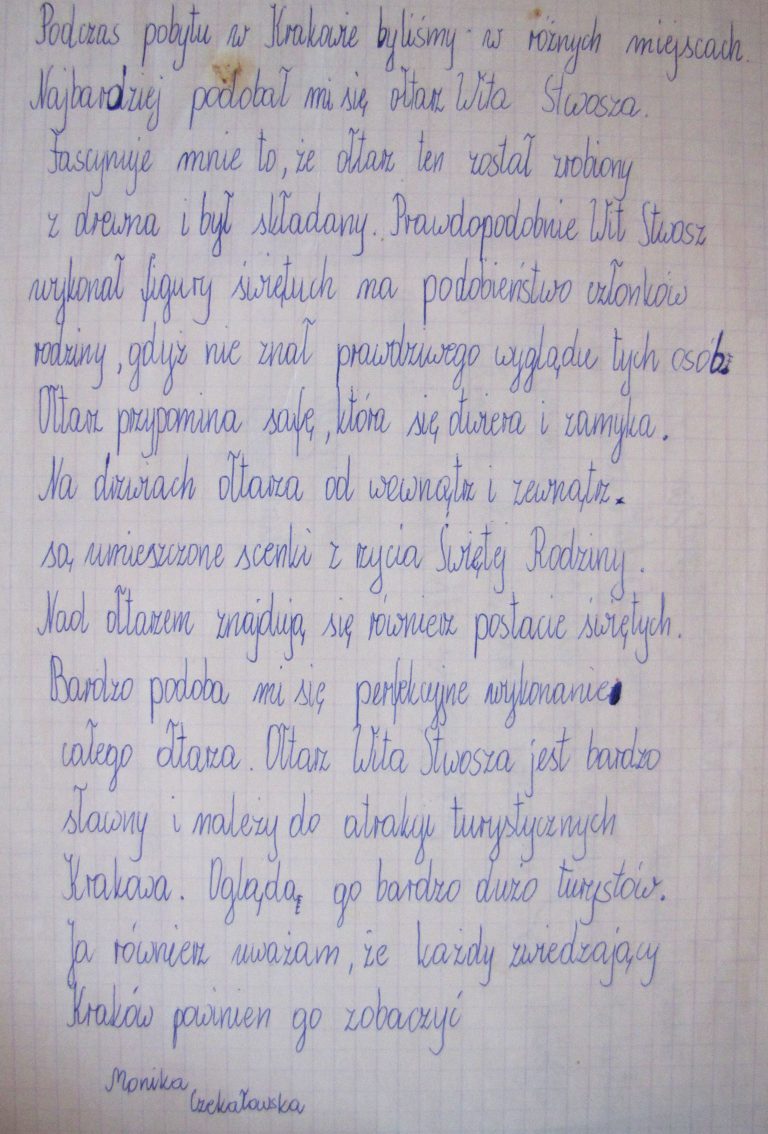 Podczas pobytu w Krakowie byliśmy w różnych miejscach.
Najbardziej podobał mi się ołtarz Wita Stwosza.
Fascynuje mnie to, że ołtarz ten został zrobiony
z drewna i był składany. Prawdopodobnie Wit Stwosz
wykonał figury świętuch na podobieństwo członków
rodziny, gdyż nie znał prawdziwego wyglądu tych osób.
Ołtarz przypomina safę, która się otwiera i zamyka.
Na drzwiach ołtarza od wewnątrz i zewnątrz.
są umieszczone scenki z rzycia Świętej Rodziny.
Nad ołtarzem znajdują się równierz postacie świętych.
Bardzo podoba mi się perfekcyjne wykonanie
całego ołtarza. Ołtarz Wita Stwosza jest bardzo
sławny i należy do atrakcji turystycznych
Krakowa. Oglądą go bardzo dużo turystów.
Ja równierz uważam, że każdy zwiedzający
Kraków powinien go zobaczyć
Monika
Czekałowska